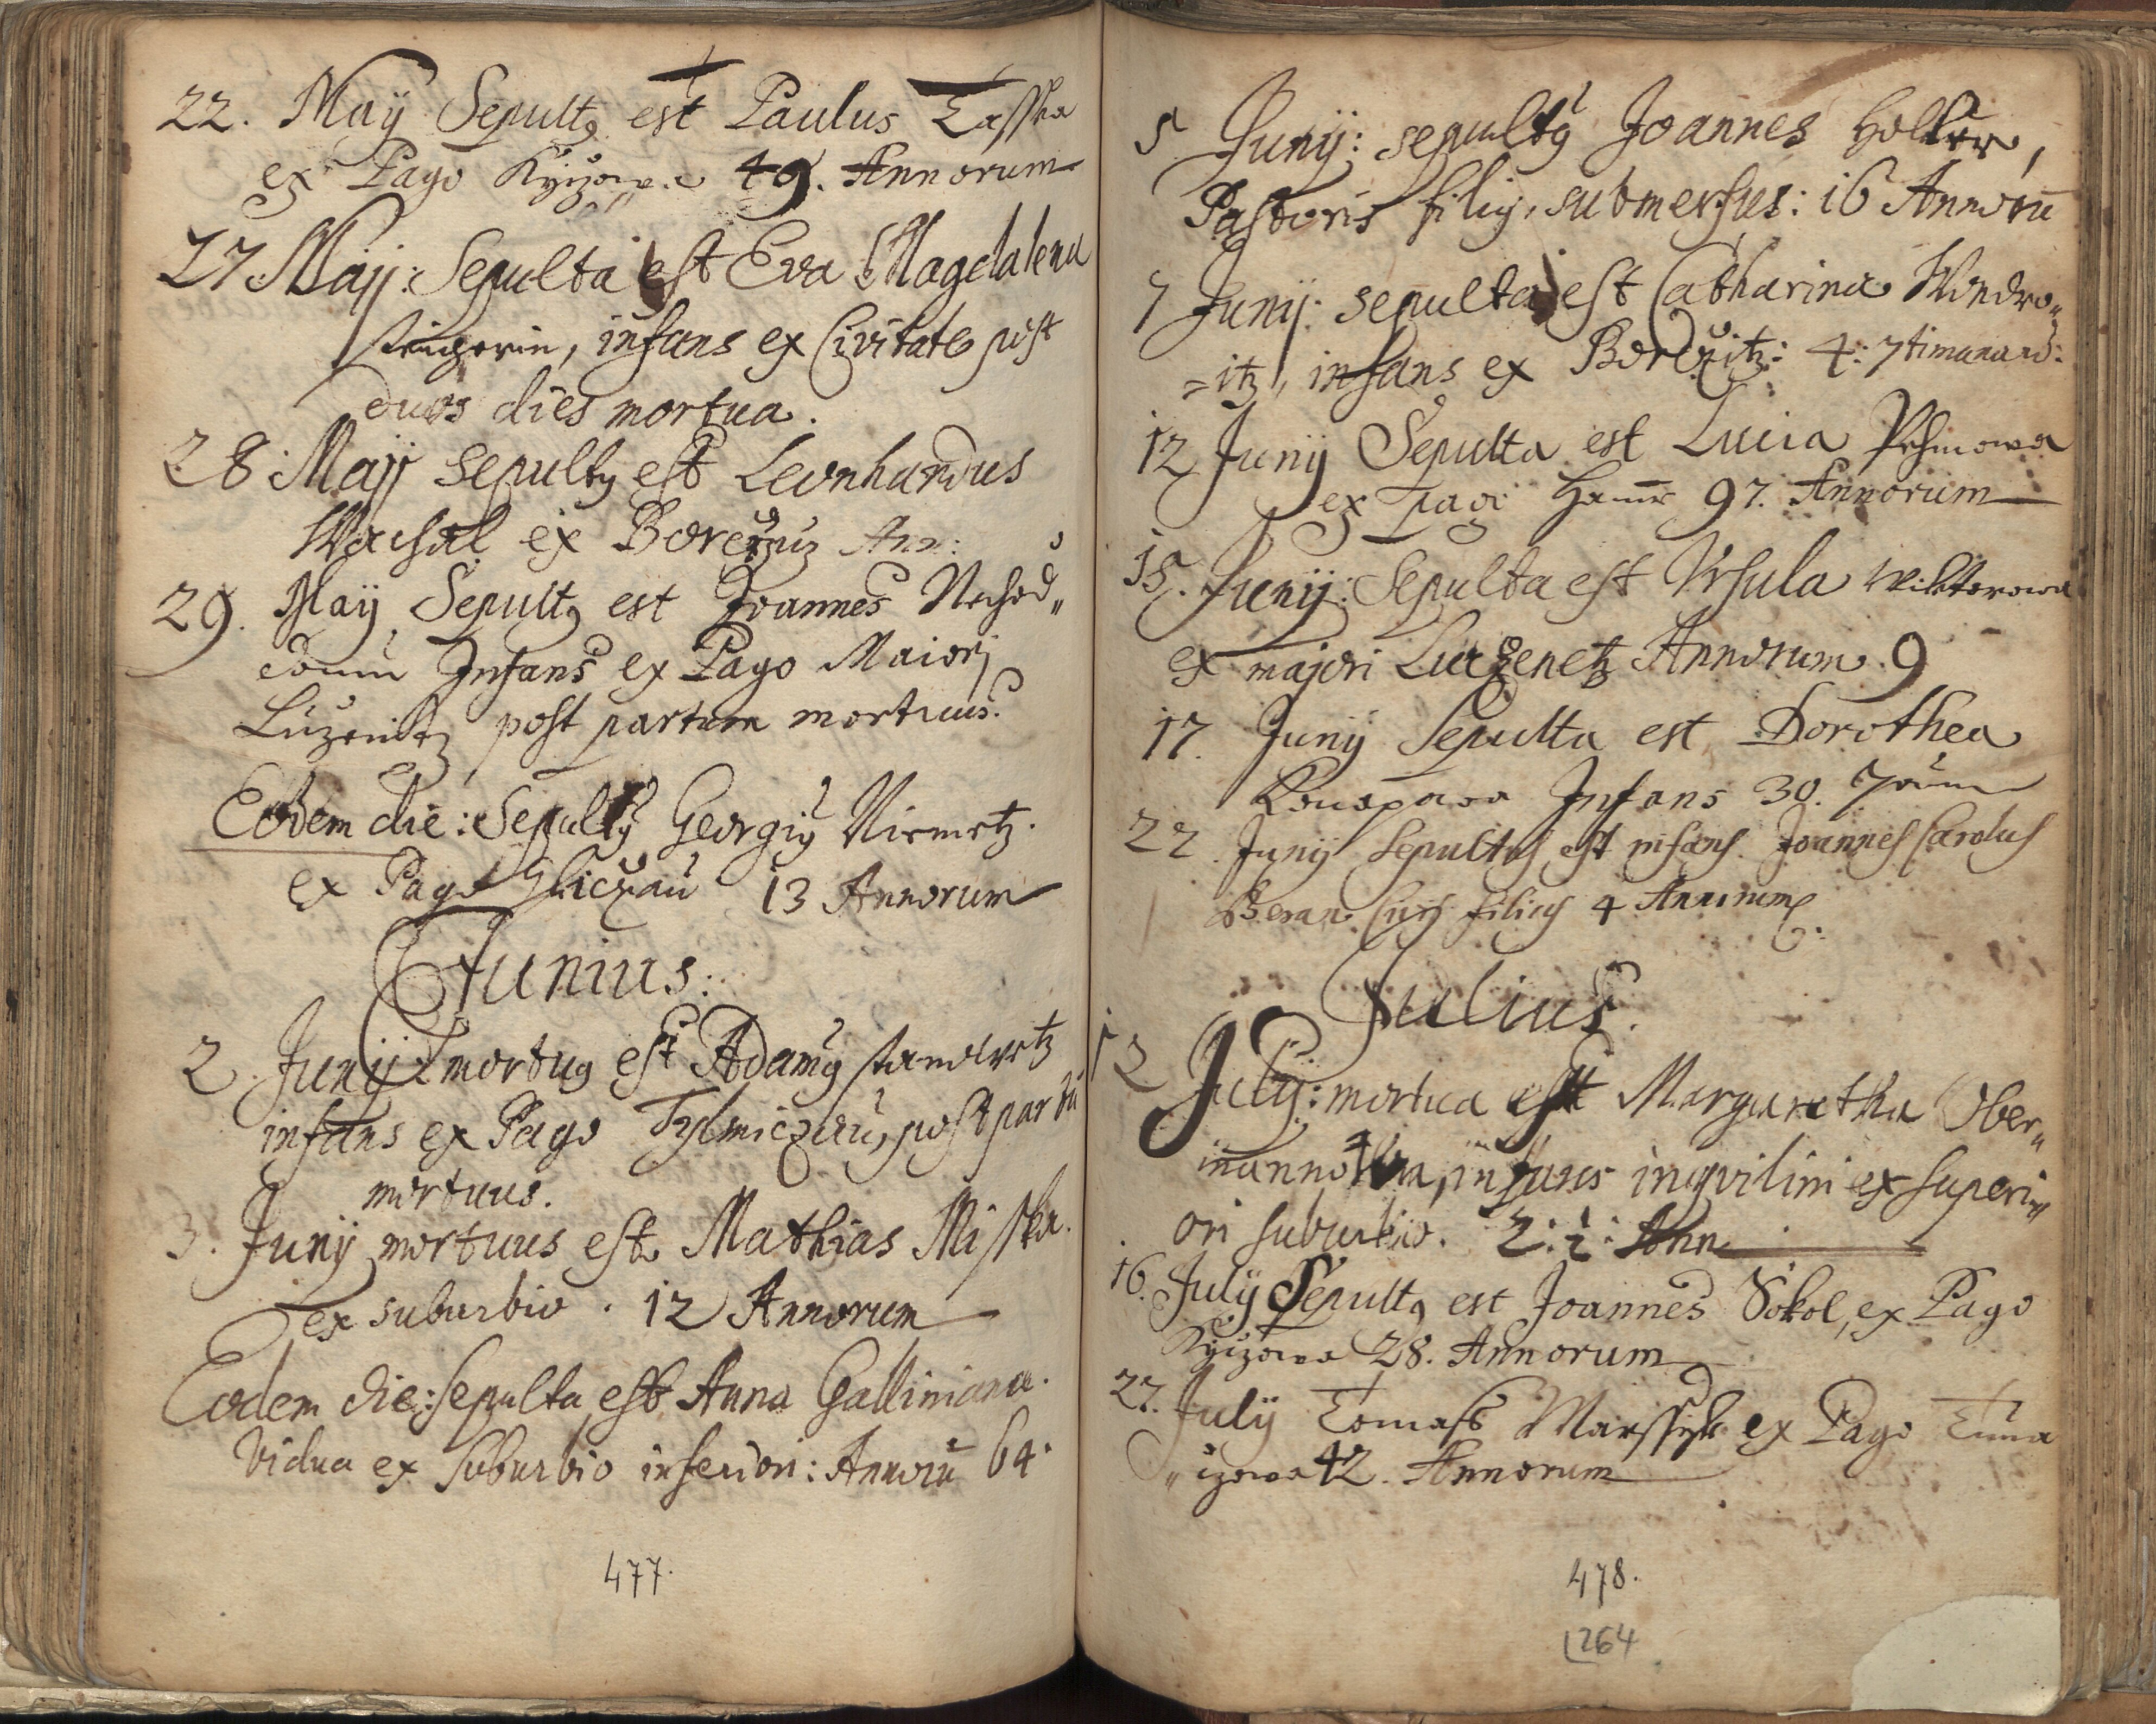 22. Maÿ Sepultꝯ est Paulus Tasska
ex Pago Kyizowa 49. Annorum
27 Maÿ: Sepulta est Eva Magdalena
infans ex Civitate post
duos dies mortua.
28 Maÿ sepultꝯ est Leonhardus
Wachal ex Ann:
29. Maÿ Sepultꝯ est Joannes Nechod„
Infans ex Pago Maiori
Luzenitz post partum mortuus.
Eodem die: Sepultꝯ Georgiꝯ Niemetz.
ex Pago 13 Annorum
Junius:
2. Junÿ mortuꝯ est Adamꝯ
infans ex Pago post partū
mortuus.
3. Junÿ mortuus est Mathias Miska.
ex suburbio. 12 Annorum
Eodem die: sepulta est Anna Galliniana.
Vidua ex suburbio inferiori: Annorū 64.
477.
5 Junÿ: sepultꝯ Joannes
Pastoris filiꝯ, submersus: 16 Annorū
7 Junÿ: sepulta est Catharina Wondro„
=itz, infans ex 4:
12 Junÿ Sepulta est Lucia
ex pago 97. Annorum
15. Junÿ: Sepulta est Ursula Wiktorowa
ex majori Luczenetz Annorum. 9
17. Junÿ Sepulta est Dorothea
Infans 30.
22. Junÿ sepultus est infans Joannes Carolus
Beran Civis filius 4 Annorum.
Julius.
13 Julÿ: mortua est Margaretha Ober„
infans inqvilini ex superi„
ori suburbio. 2: ½: Ann
16. Julÿ Sepultꝯ est Joannes Sokol, ex Pago
Kyizowa 28. Annorum
27. Julÿ Tomass Marssyk ex Pago Tuna
„izowa 42. Annorum
478.
264